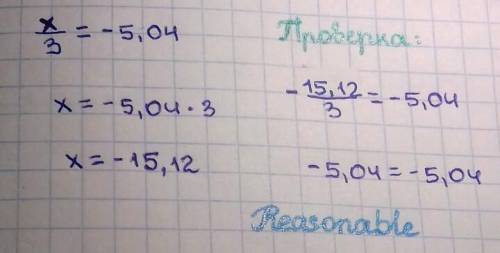 x/3 = -5,04
x = -5,04 · 3
x = -15,12
Проверка:
-15,12/3 = -5,04
-5,04 = -5,04
Reasonable